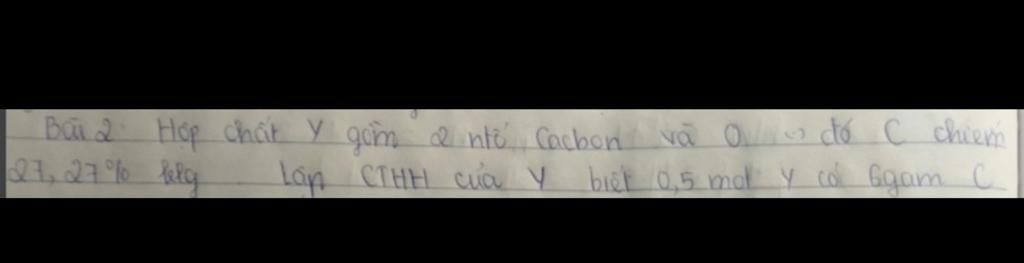 Bài 2: Hợp chất Y gồm 2 ntố Cacbon và O đó C chiếm
27,27% klg Lập CTHH của Y biết 0,5 mol Y có 6gam C